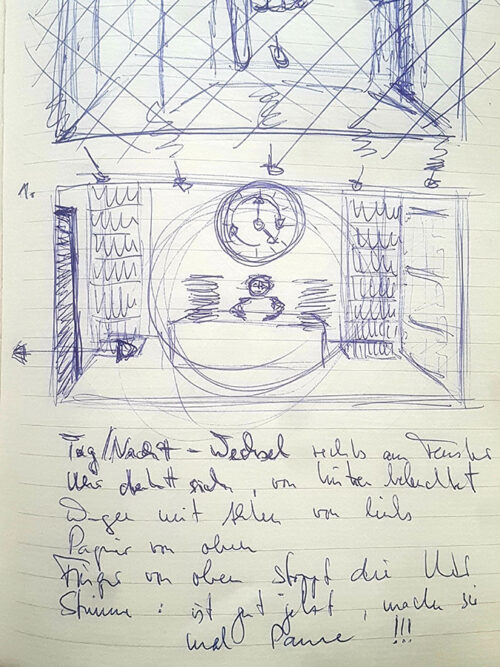 1.
Tag/Nacht - Wechsel rechts am Fenster
Uhr dreht sich, von hinten beleuchtet
mit von links
Papier von oben
Finger von oben stoppt die Uhr
Stimme: ist gut jetzt, machen sie
mal Pause !!!